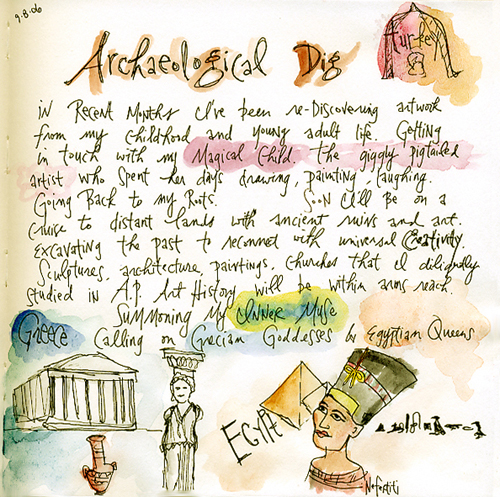 9.8.06
Archaeological Dig
Turkey
in Recent Months I've been re-Discovering artwork
from my childhood and young adult life. Getting
in touch with my Magical Child. The giggly pigtailed
artist who spent her days drawing, painting, laughing.
Going Back to my Roots. Soon I'll Be on a
Cruise to distant lands with ancient ruins and art.
Excavating the past to reconnect with universal Creativity.
Sculptures, architecture, paintings, Churches that I diligently
studied in A.P. Art History will be within arms reach.
Summoning My Inner Muse
Greece Calling on Grecian Goddesses & Egyptian Queens
EGYPT
Nefertiti